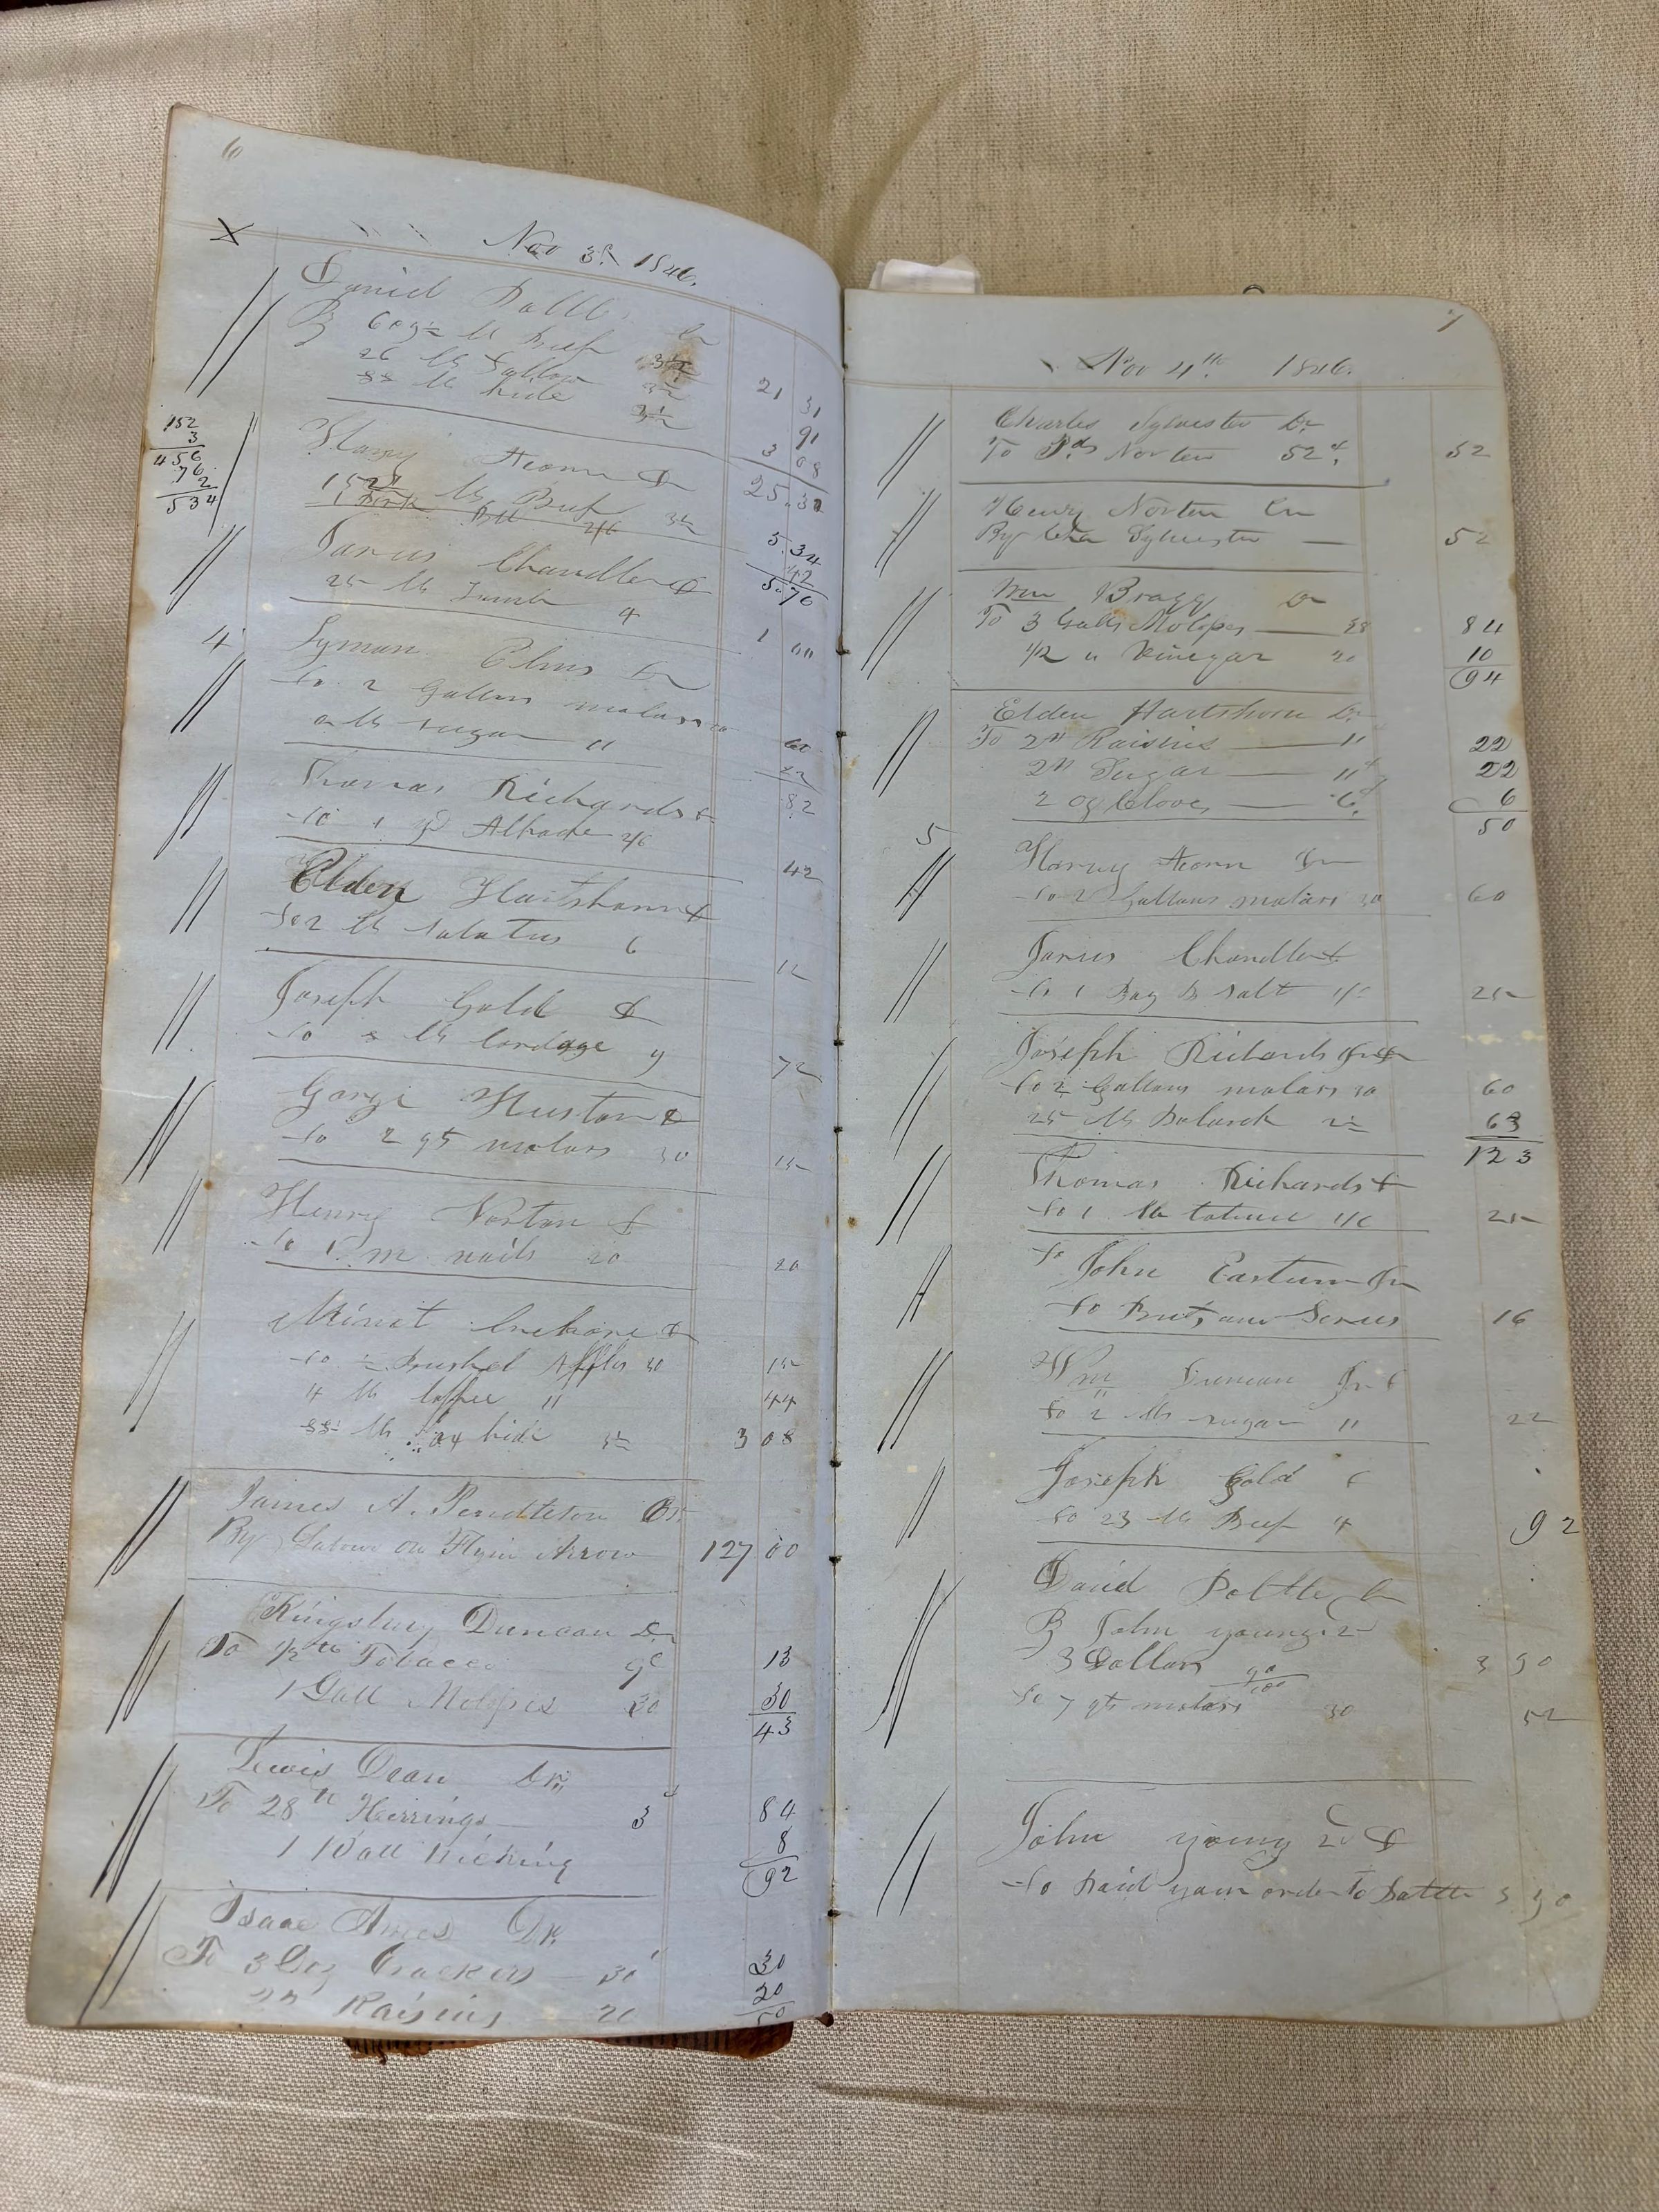 6
X
Nov 3d 1846.
Daniel
By 609 1/2 lb Beef 3 1/2 21 31
26 lb Tallow 3 1/2 91
88 lb hide 3 1/2 3 08
25.30
152
3
456
76
2
534
Harvy Acorn Dr
152 lb Beef 3 1/2 5.34
1 2/6 42
5.76
Jarius Chandler Dr
25 lb Lamb 4 1 00
4
Lyman Elms Dr
To 2 Gallons molasses 30 60
2 lb sugar 11 22
82
Thomas Richards Dr
To 1 yd 2/6 42
Elden Hartshorn Dr
To 2 lb Salatus 6 12
Joseph Gold Dr
To 8 lb Cordage 9 72
George Huston Dr
To 2 qts molass 30 15
Henry Norton Dr
To 1 m nails 20 20
Minot Crehore Dr
To 1/2 Bushel Apples 30 15
4 lb Coffee 11 44
88 lb hide 3 1/2 3 08
James A. Pendleton Cr
By Labour on Flyin Arrow 127 00
Kingsbury Duncan Dr
To 1/2 lb Tobacco 13
1 Gall Molases 30 30
43
Lewis Dean Dr.
To 28 lb Herrings 3 84
1 Ball Wicking 8
92
Isaac Ames Dr.
To 3 Doz Crackers 30
2 lb Raisins 20
50
7
Nov 4th 1846.
Charles Sylvester Dr
To Pd Norton 52 cts. 52
Henry Norton Cr
By Cha Sylvester — 52
Wm Bragg Dr
To 3 Galls Molases — 28 84
1/2 " Vinegar 20 10
94
Elden Hartshorn Dr.
To 2 lb Raisins — 11 22
2 lb Sugar — 11 22
2 oz Cloves — 6
50
5
Harvy Acorn Dr
To 2 Gallons molass 30 60
Jarius Chandler Dr
To 1 Bag B Salt 1/6 25
Joseph Richards Jr Dr
To 2 Gallons molass 30 60
25 lb 2 1/2 63
123
Thomas Richards Dr
To 1 lb 1/6 25
To
John Eastum Dr
To Buts and Screws 16
Wm Duncan Jr Dr
To 2 lb sugar 11 22
Joseph Gold Dr
To 23 lb Beef 4 92
David Cr
By John young 2d
3 Dollars 90/100 3 90
To 7 qts molass 30 52
John young 2d Dr
To Paid your order to 3 90